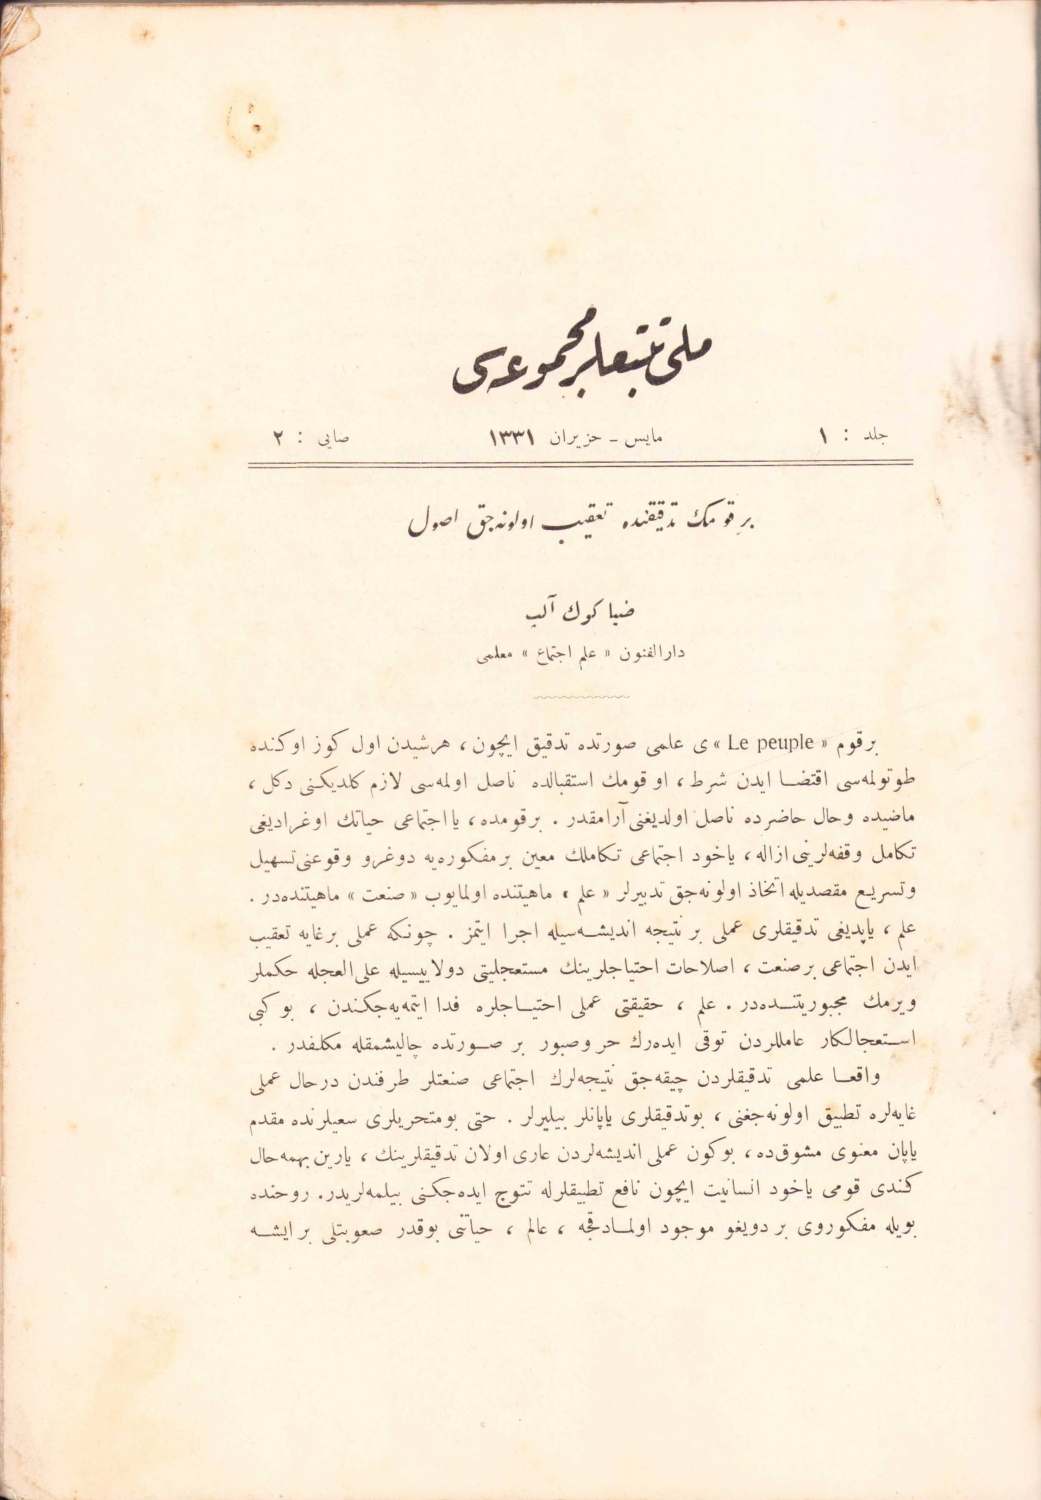 ملی تتبعلر مجموعه‌سی
جلد : ١ مایس - حزیران ١٣٣١ صایی : ٢
بر قومك تدقیقنده تعقیب اولونه‌جق اصول
ضیا كوك آلپ
دارالفنون « علم اجتماع » معلمی
بر قوم « Le peuple » ی علمی صورتده تدقیق ایچون ، هرشیدن اول كوز اوكنده
طوتولمه‌سی اقتضا ایدن شرط ، او قومك استقبالده ناصل اولمه‌سی لازم كلدیكنی دكل ،
ماضیده وحال حاضرده ناصل اولدیغنی آرامقدر . برقومده ، یا اجتماعی حیاتك اوغرادیغی
تكامل وقفه‌لرینی ازاله ، یاخود اجتماعی تكاملك معین بر مفكوره‌یه دوغرو وقوعنی تسهیل
وتسریع مقصدیله اتخاذ اولونه‌جق تدبیرلر « علم » ماهیتنده اولمایوب « صنعت » ماهیتنده‌در .
علم ، یاپدیغی تدقیقلری عملی بر نتیجه اندیشه‌سیله اجرا ایتمز . چونكه عملی برغایه تعقیب
ایدن اجتماعی برصنعت ، اصلاحات احتیاجلرینك مستعجلیتی دولاییسیله علی‌العجله حكملر
ویرمك مجبوریتنده‌در . علم ، حقیقتی عملی احتیاجلره فدا ایتمه‌یه‌جكندن ، بو كبی
استعجالكار عامللردن توقی ایده‌رك حر وصبور بر صورتده چالیشمقله مكلفدر .
واقعا علمی تدقیقلردن چیقه‌جق نتیجه‌لرك اجتماعی صنعتلر طرفندن درحال عملی
غایه‌لره تطبیق اولونه‌جغنی ، بوتدقیقلری یاپانلر بیلیرلر . حتی بومتحریلری سعیلرنده مقدم
یاپان معنوی مشوق‌ده ، بوكون عملی اندیشه‌لردن عاری اولان تدقیقلرینك ، یارین بهمه‌حال
كندی قومی یاخود انسانیت ایچون نافع تطبیقلرله تتوج ایده‌جكنی بیلمه‌لریدر. روحنده
بویله مفكوروی بر دویغو موجود اولمادقجه ، عالم ، حیاتنی بوقدر صعوبتلی بر ایشه